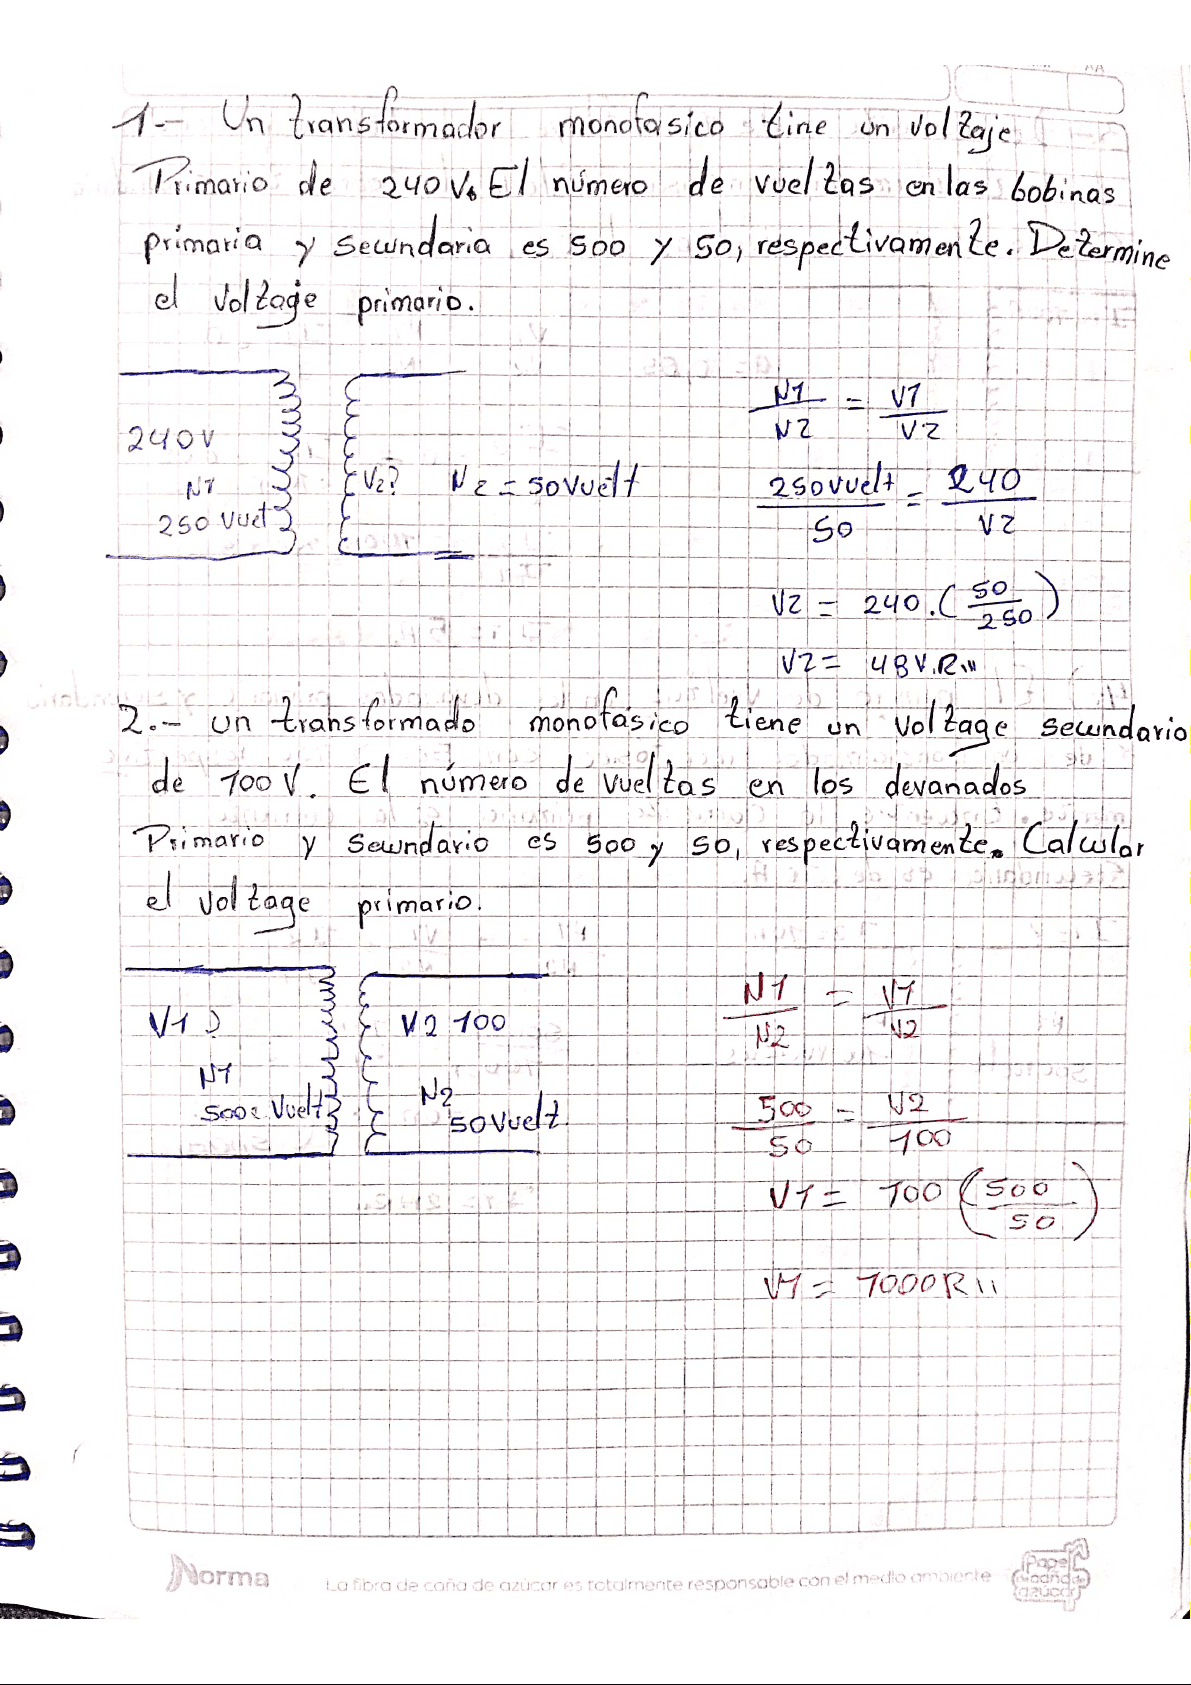 1.- Un transformador monofasico tine un voltaje
Primario de 240 V. El número de vueltas en las bobinas
primaria y secundaria es 500 y 50, respectivamente. Determine
el voltage primario.
240 V
N1
250 Vuelt
V2? N2 = 50 Vuelt
N1/N2 = V1/V2
250 vuelt/50 = 240/V2
V2 = 240.(50/250)
V2 = 48 V.R///
2.- un transformado monofásico tiene un voltage secundario
de 100 V. El número de vueltas en los devanados
Primario y secundario es 500 y 50, respectivamente. Calcular
el voltage primario.
V1?
N1
500 Vuelt
V2 100
N2
50 Vuelt.
N1/N2 = V1/V2
500/50 = V2/100
V1 = 100 (500/50)
V1 = 1000 R //
Norma
La fibra de caña de azúcar es totalmente responsable con el medio ambiente
Papel
caña de
azúcar